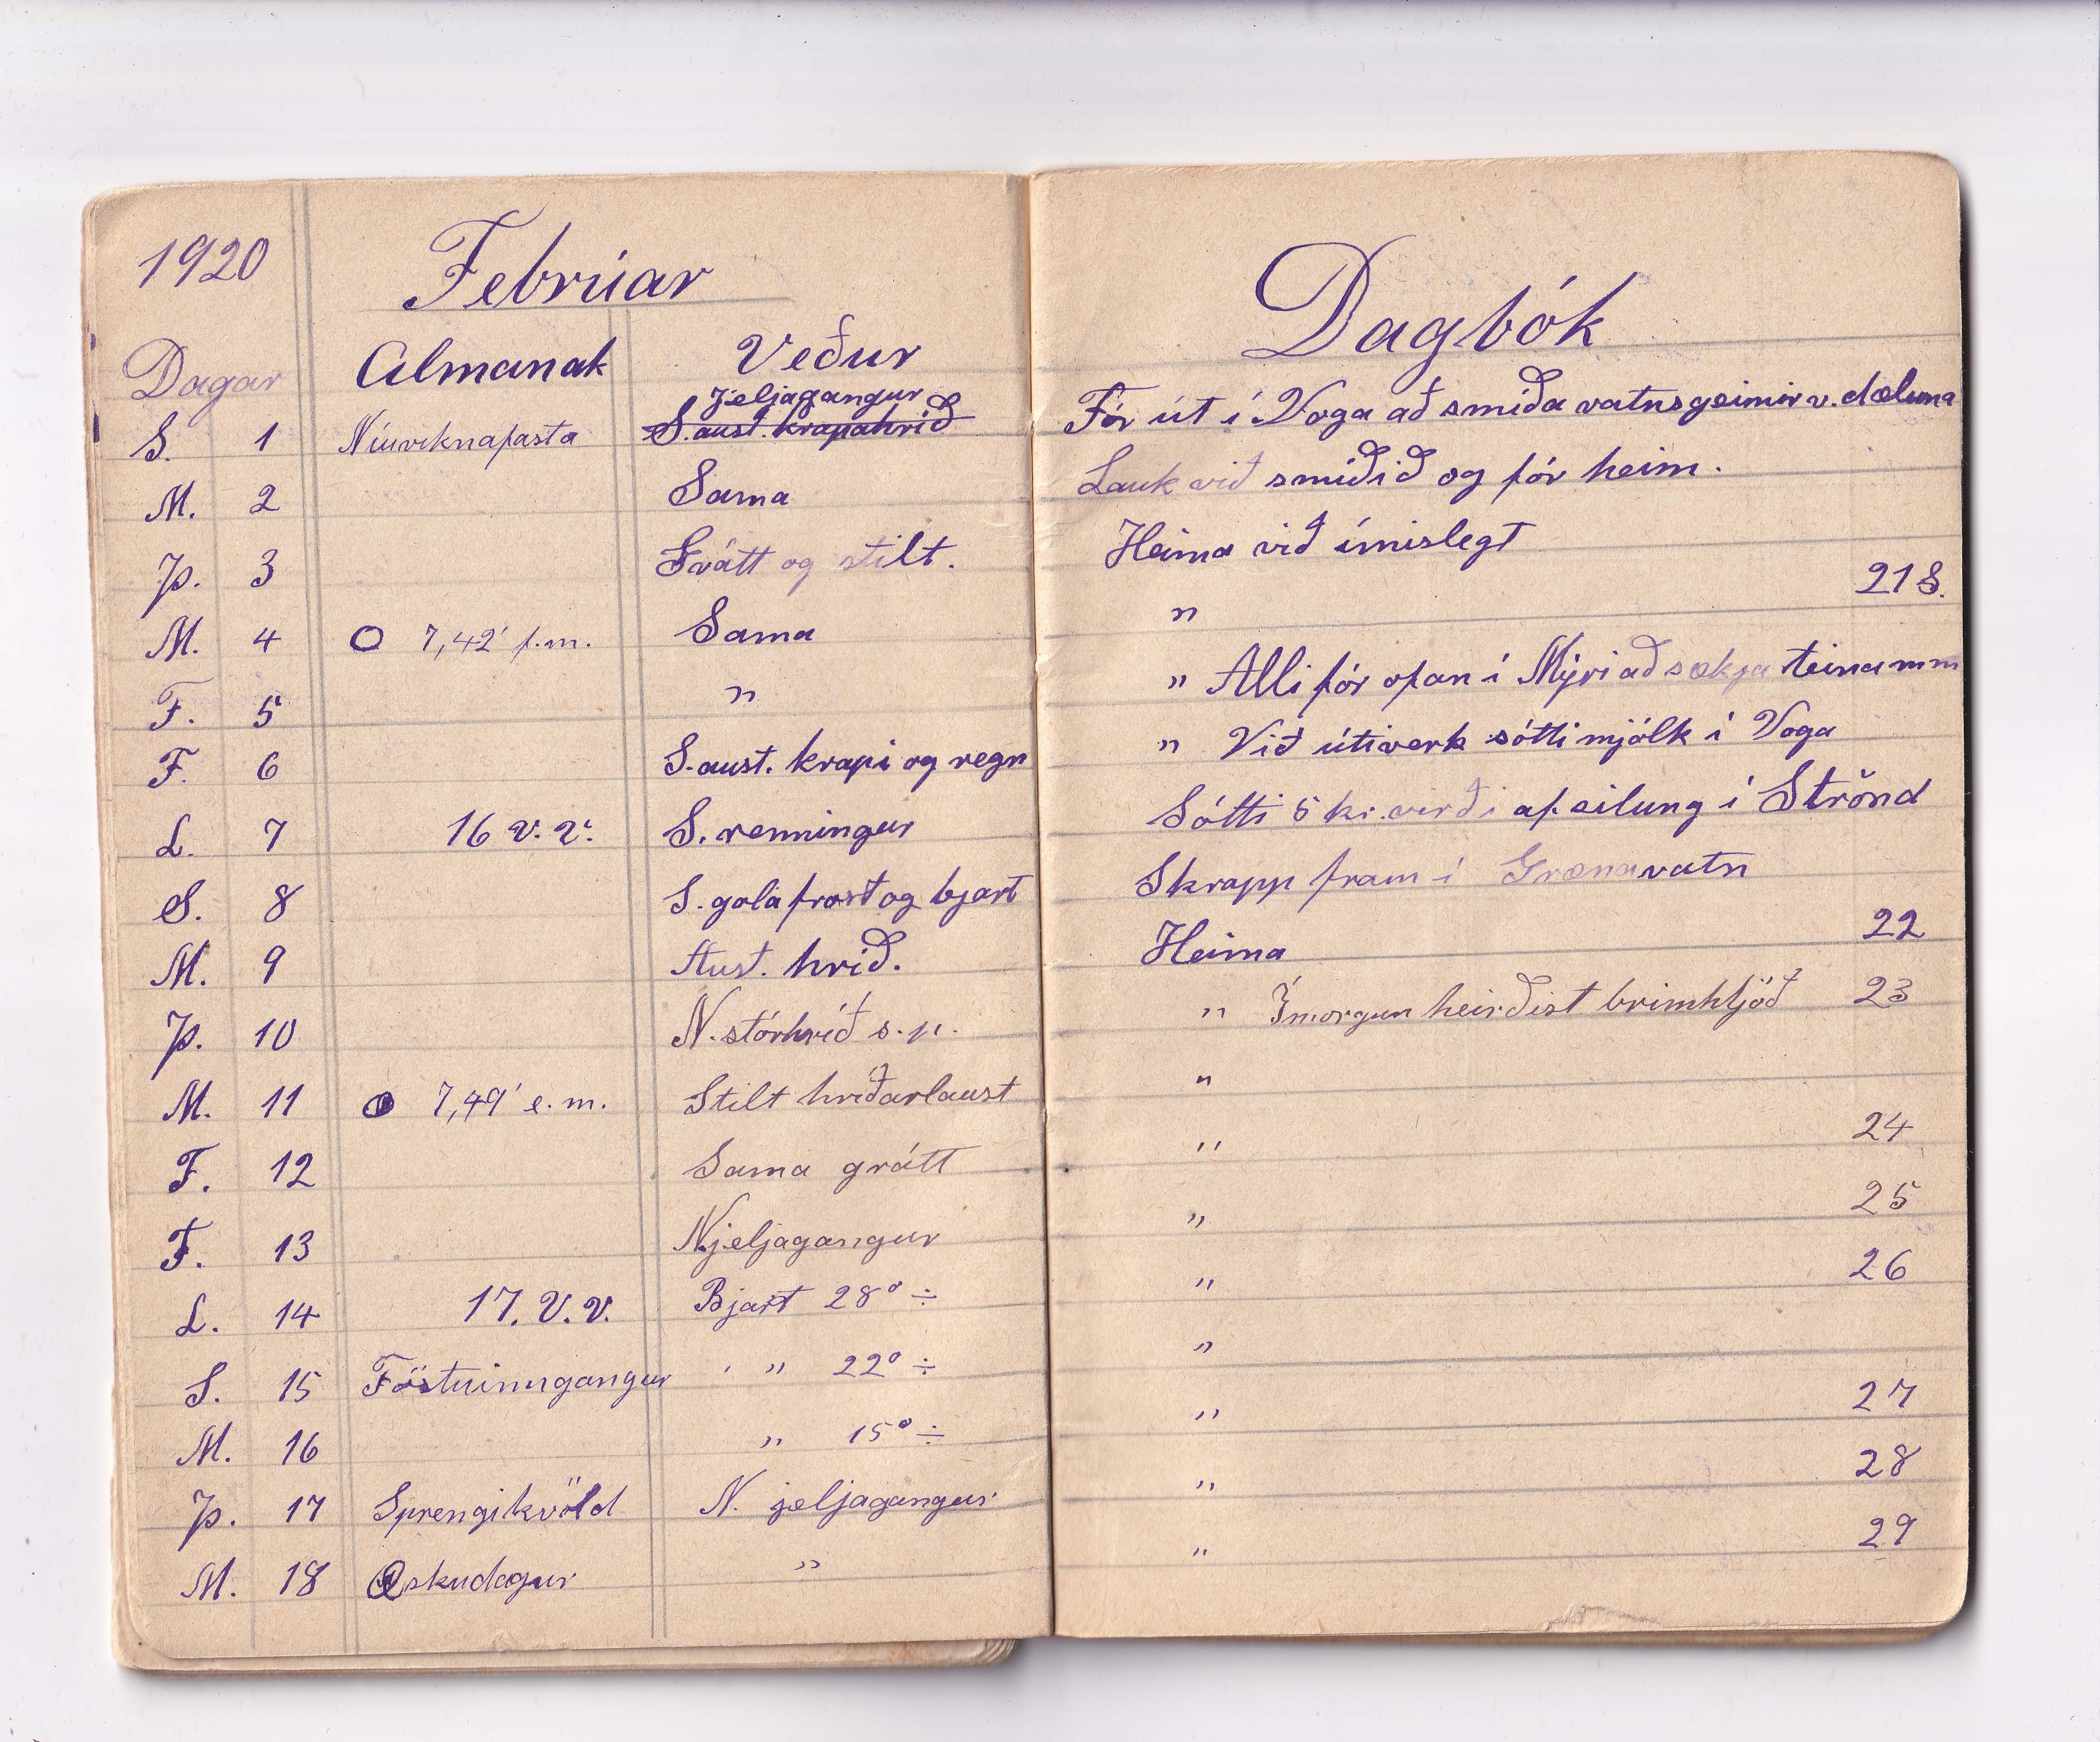 1920 Febrúar
Dagar Almanak Veður
Jeljagangur
S. 1 Níuviknafasta S.aust. krapahrið
M. 2 Sama
Þ. 3 Grátt og stilt.
M. 4 O 7,42' f.m. Sama
F. 5 "
F. 6 S.aust. krapi og regn
L. 7 16 v. v. S. renningur
S. 8 S. gola frost og bjart
M. 9 Aust. hrið.
Þ. 10 N. stórhríð s.p.
M. 11 7,49' e.m. Stilt hriðarlaust
F. 12 Sama grátt
F. 13 N jeljagangur
L. 14 17. V. V. Bjart 28° ÷
S. 15 Föstuinngangur " 22° ÷
M. 16 " 15° ÷
Þ. 17 Sprengikvöld N. jeljagangur
M. 18 Öskudagur "
Dagbók
Fór út í Voga að smiða vatnsgeimir v. dæluna
Lauk við smiðið og fór heim.
Heima við ímislegt
" 21 S.
" Alli fór ofan í Mýri að sækja teinamm
" Við útiverk sótti mjólk í Voga
Sótti 5 kr. virði af silung í Strönd
Skrapp fram í Grænavatn
Heima 22
" Ímorgun heirðist brimhljóð 23
"
" 24
" 25
" 26
"
" 27
" 28
" 29